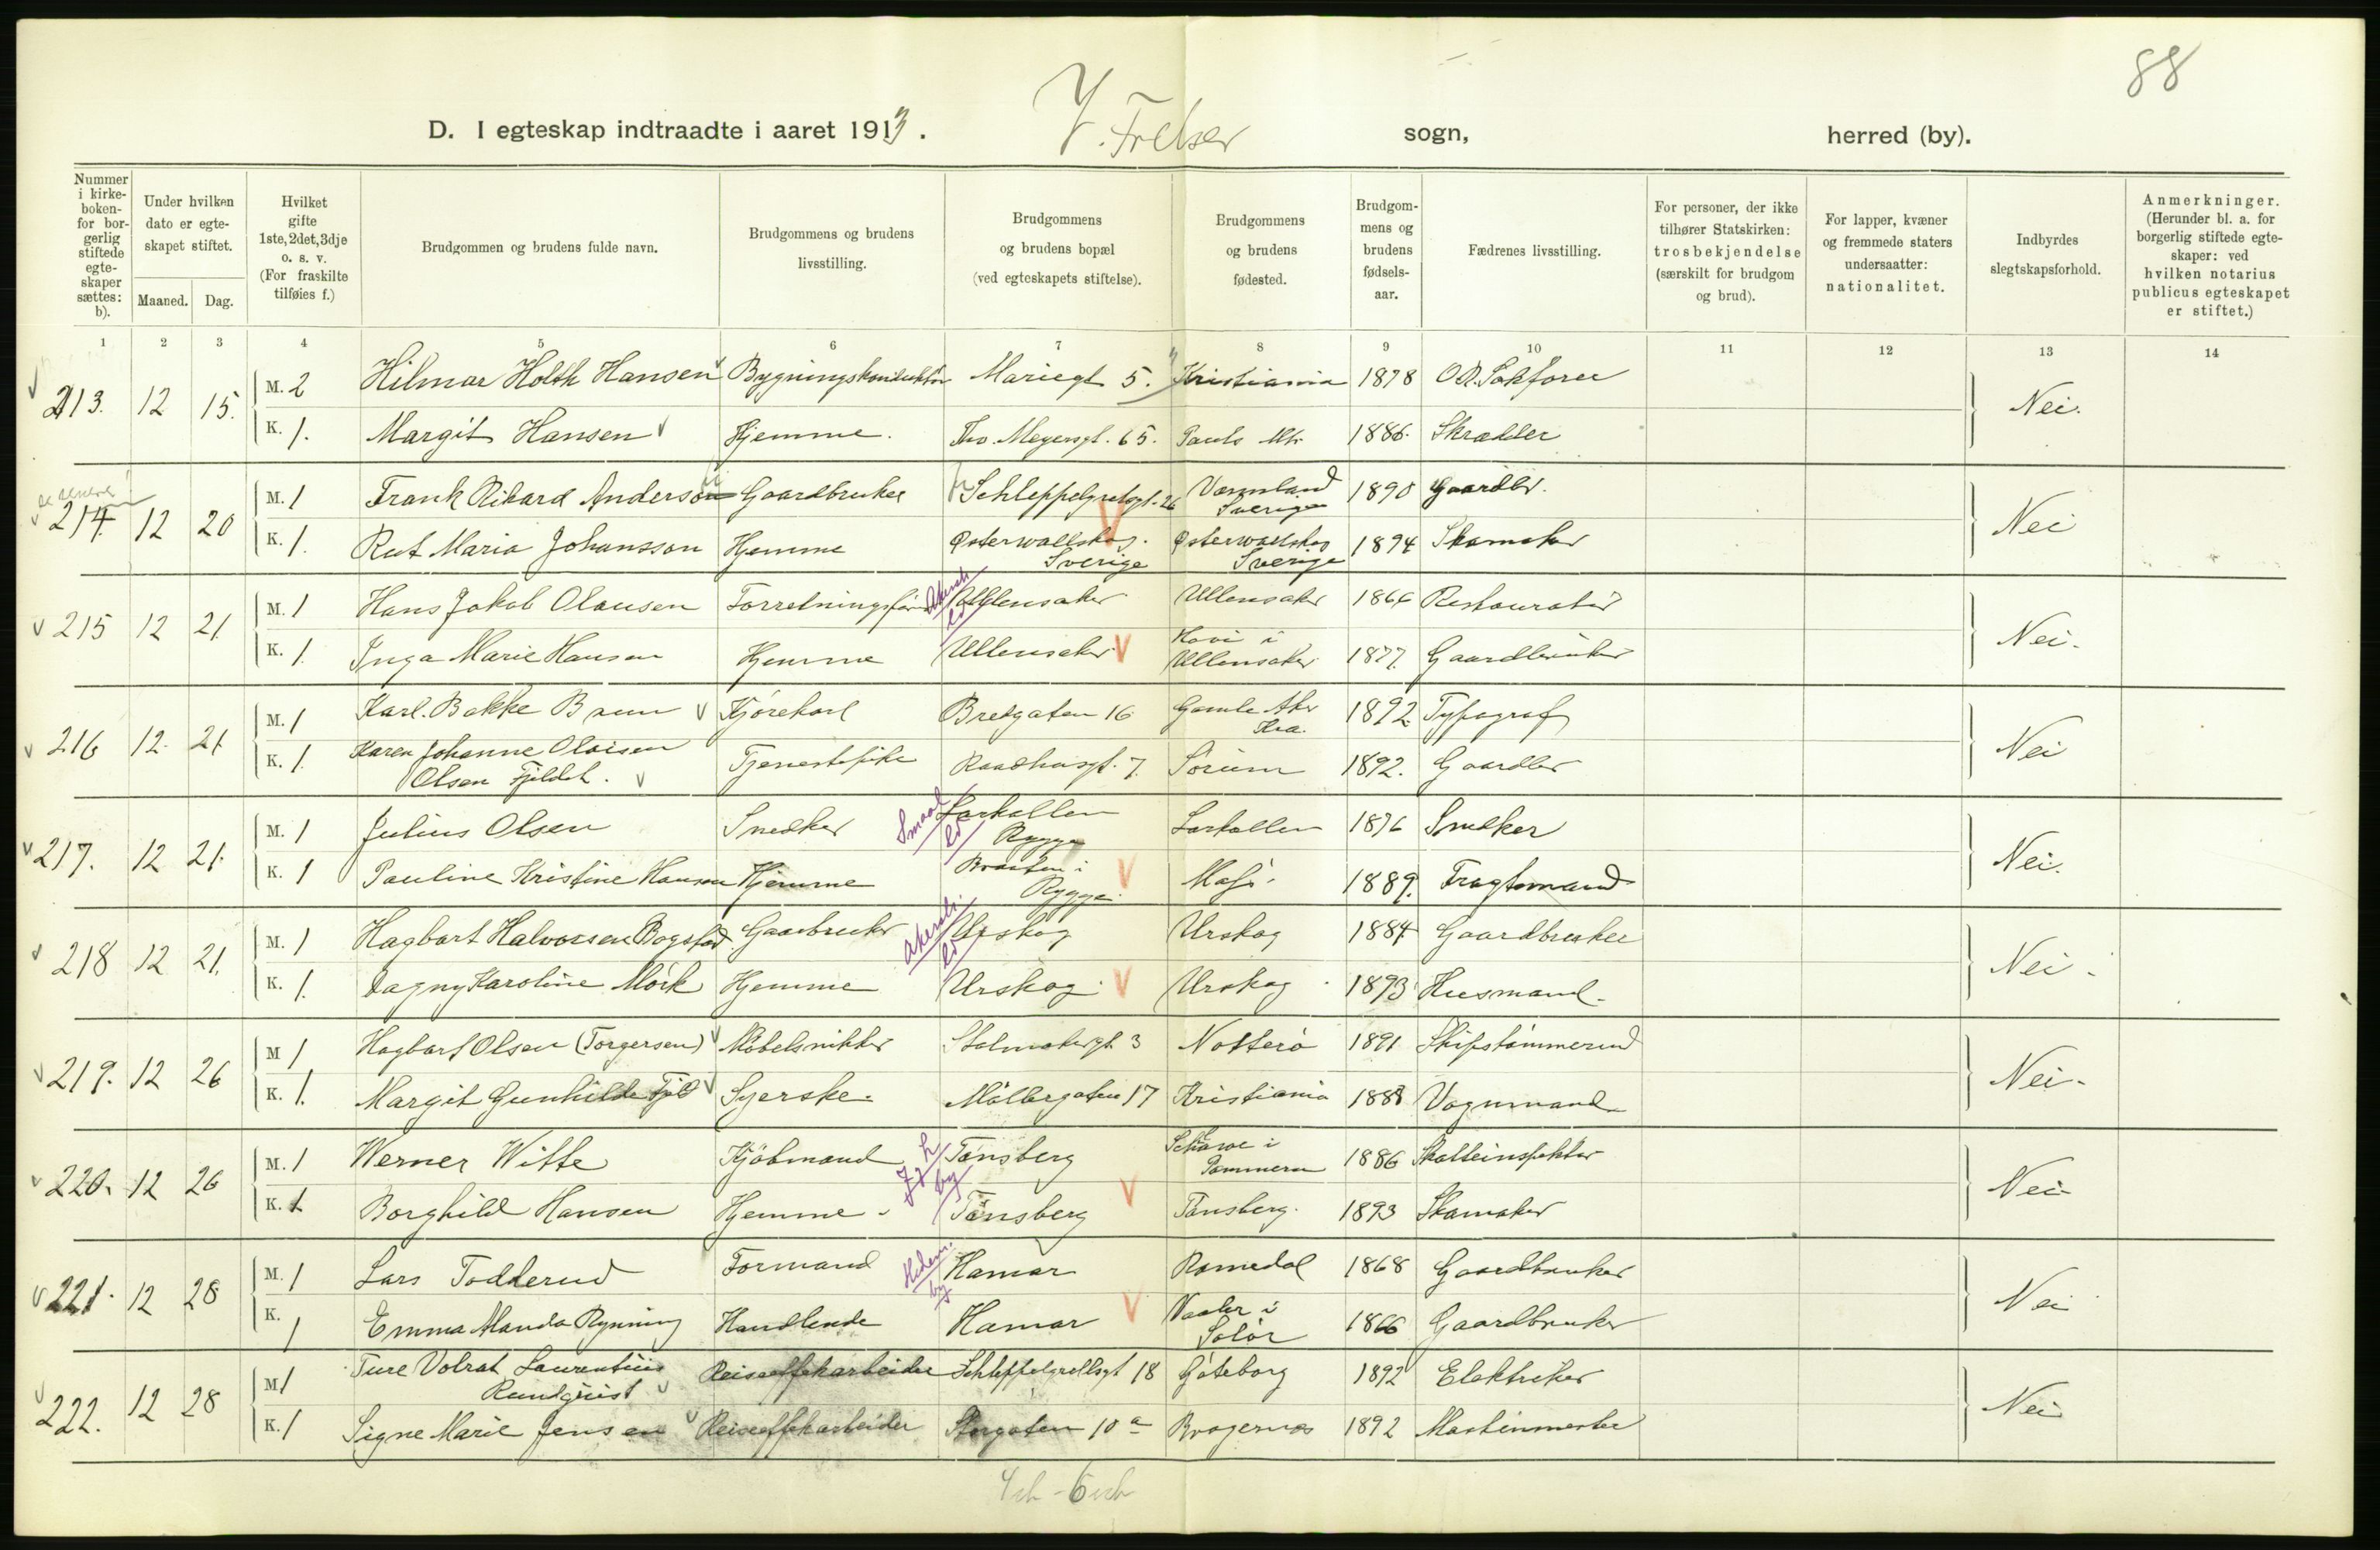 88
D. I egteskap indtraadte i aaret 1913. V. Frelser sogn, herred (by).
Nummer i kirke-boken- for bor-gerlig stiftede egte-skaper sættes: b).
Under hvilken dato er egte-skapet stiftet.
Maaned. Dag.
Hvilket gifte 1ste, 2det, 3dje o. s. v. (For fraskilte tilføies f.)
Brudgommen og brudens fulde navn.
Brudgommens og brudens livsstilling.
Brudgommens og brudens bopæl (ved egteskapets stiftelse).
Brudgommens og brudens fødested.
Brudgom-mens og brudens fødsels-aar.
Fædrenes livsstilling.
For personer, der ikke tilhører Statskirken: trosbekjendelse (særskilt for brudgom og brud).
For lapper, kvæner og fremmede staters undersaatter: nationalitet.
Indbyrdes slegtskapsforhold.
Anmerkninger. (Herunder bl. a. for borgerlig stiftede egte-skaper: ved hvilken notarius publicus egteskapet er stiftet.)
1 2 3 4 5 6 7 8 9 10 11 12 13 14
213. 12 15. M. 2 Hilmar Holth Hansen Bygningskonduktør Mariegt 5. Kristiania 1878 O.R. Sakfører Nei.
K. 1. Margit Hansen Hjemme. Tho. Meyersgt. 65. Pauls 1886. Skrædder
214. 12 20 M. 1 Frank Rikard Anderson Gaardbruker Schleppelgrelsgt. 26 Vermland Sverige 1890 Gaardbr. Nei
K. 1. Rut Maria Johansson Hjemme Østerwallskog. Sverige Østerwallskog Sverige 1894 Skomaker
215 12 21 M. 1 Hans Jakob Olausen Forretningsfører Akersh. ld Ullensaker Ullensaker 1866 Restauratør Nei.
K. 1. Inga Marie Hansen Hjemme Ullensaker Hovi i Ullensaker 1877. Gaardbruker
216 12. 21 M. 1 Karl. Bakke Baun Kjørekarl Bredgaten 16 Gamle Aker Kra. 1892 Typograf Nei
K. 1. Karen Johanne Olaisen Olsen Fjeldet. Tjenestepike Raadhusgt. 7. Sørum 1892. Gaardbr
217. 12 21. M. 1 Julius Olsen Snedker Smaal ld Larkollen Rygge Larkollen 1876 Snedker Nei.
K. 1 Pauline Kristine Hansen Hjemme Braaten i Rygge. Moss. 1889. Fragtemand
218 12 21. M. 1 Hagbart Halvorsen Bogstad Gaarbruker Akersh. ld Urskog Urskog 1884 Gaardbruker Nei.
K. 1. Dagny Karoline Mørk Hjemme Urskog. Urskog. 1893 Husmand.
219. 12 26 M 1 Hagbart Olsen (Torgersen) Møbelsnikker Stolmakergt. 3 Nøtterø 1891 Skipstømmermd Nei.
K. 1. Margit Gunhilde Fjeld Syerske. Møllergaten 17 Kristiania 1888 Vognmand
220. 12 26 M. 1 Werner Witte Kjøbmand J. L. by Tønsberg Pommern 1886 Skatteinspektør Nei.
K. 1 Borghild Hansen Hjemme. Tønsberg Tønsberg. 1893 Skomaker
221. 12 28 M. 1 Lars Todderud Formand Hedem. by Hamar Romedal 1868 Gaardbruker Nei
K. 1 Emma Manda Rynning Handlende Hamar Vaaler i Solør 1866 Gaardbruker
222. 12 28 M 1 Ture Volrat Laurentius Rundquist Reiseeffekarbeider Schleppelgrellsgt 18 Gøteborg 1892 Elektriker Nei
K. 1 Signe Marie Jensen Reiseeffekarbeider Storgaten 10 a Bragernes 1892 Maskinmester